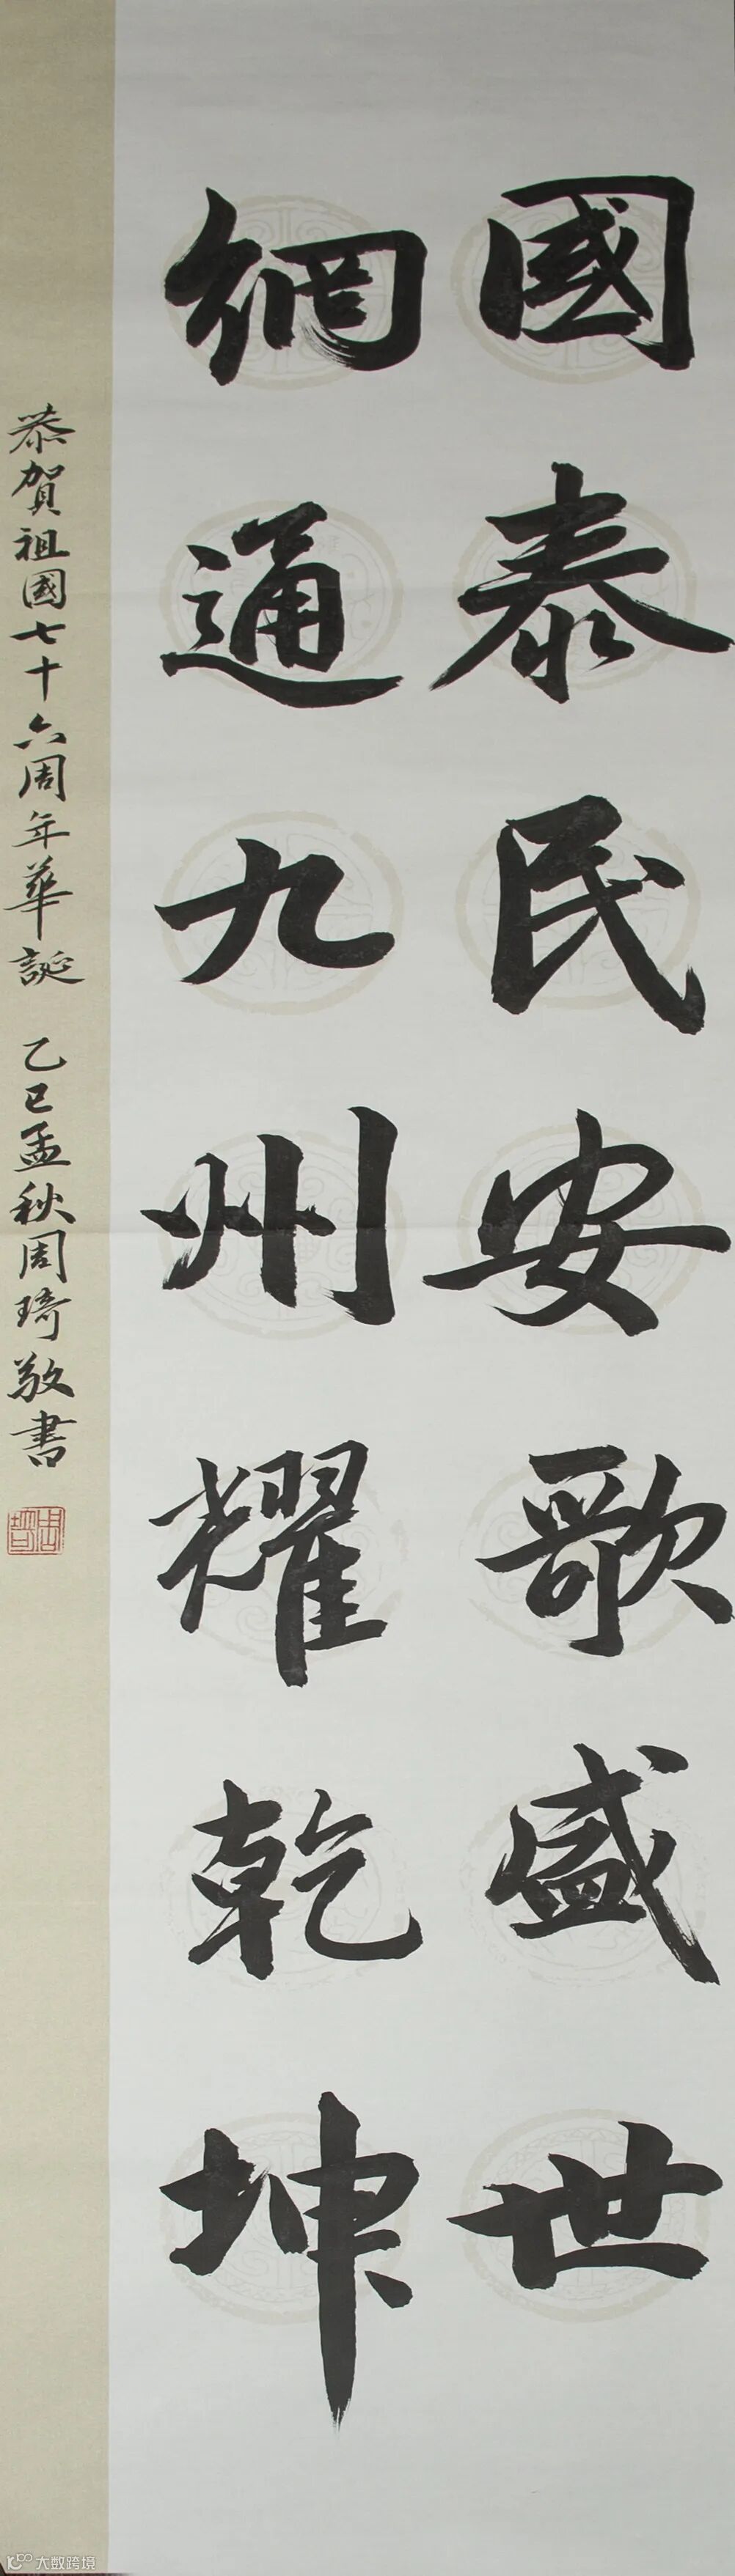 國泰民安歌盛世
網通九州耀乾坤
恭賀祖國七十六周年華誕 乙巳孟秋周琦敬書
大数跨境